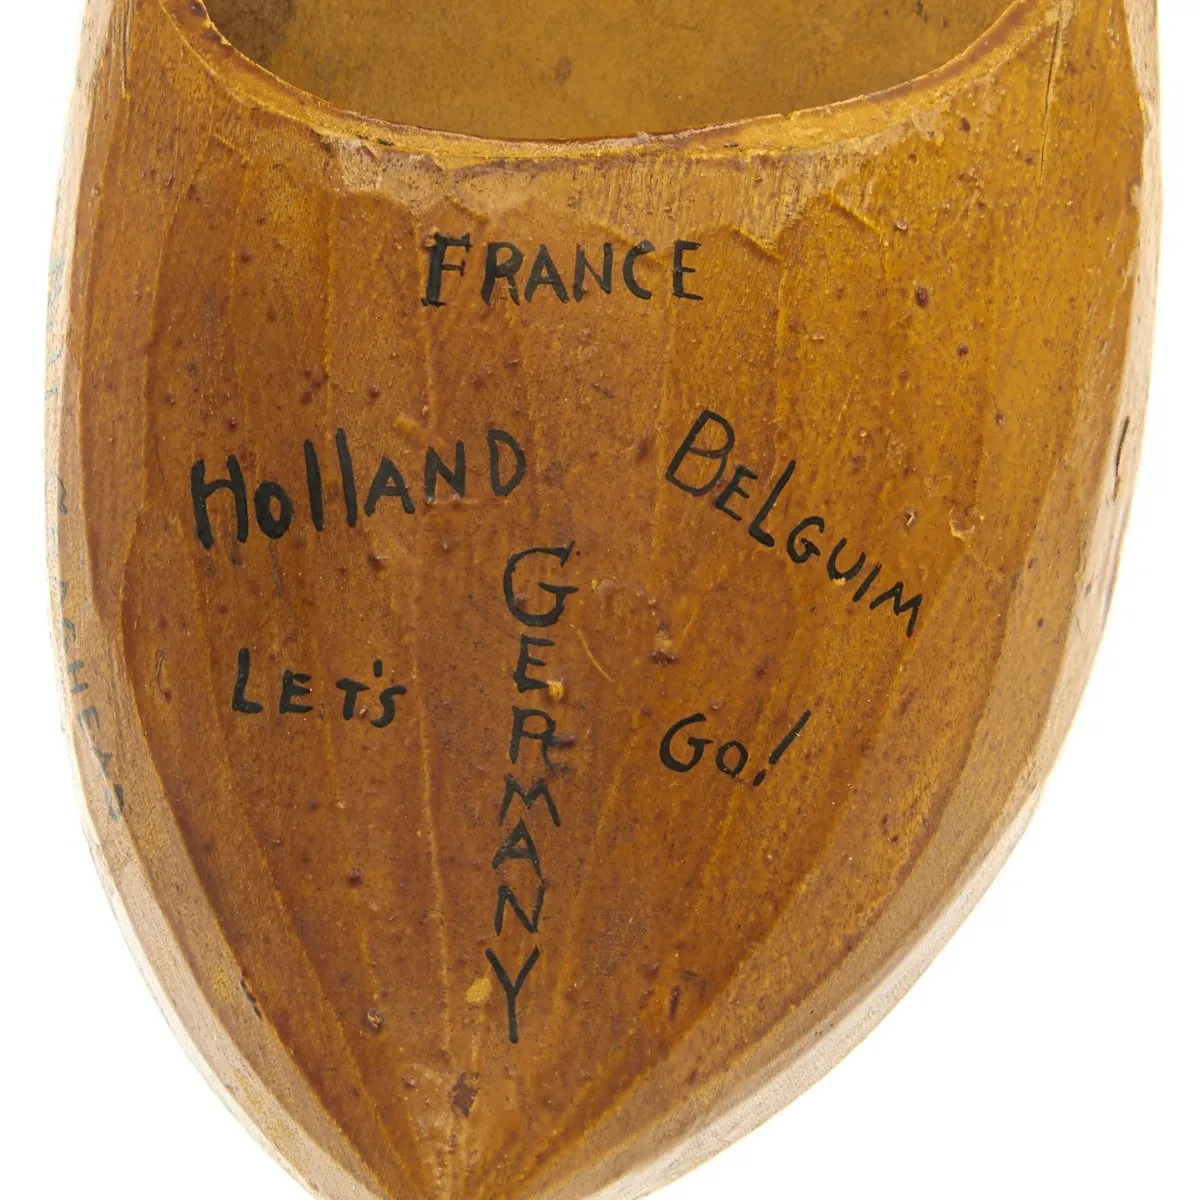 FRANCE
HollAND
BELGUIM
GERMANY
LET'S
GO!